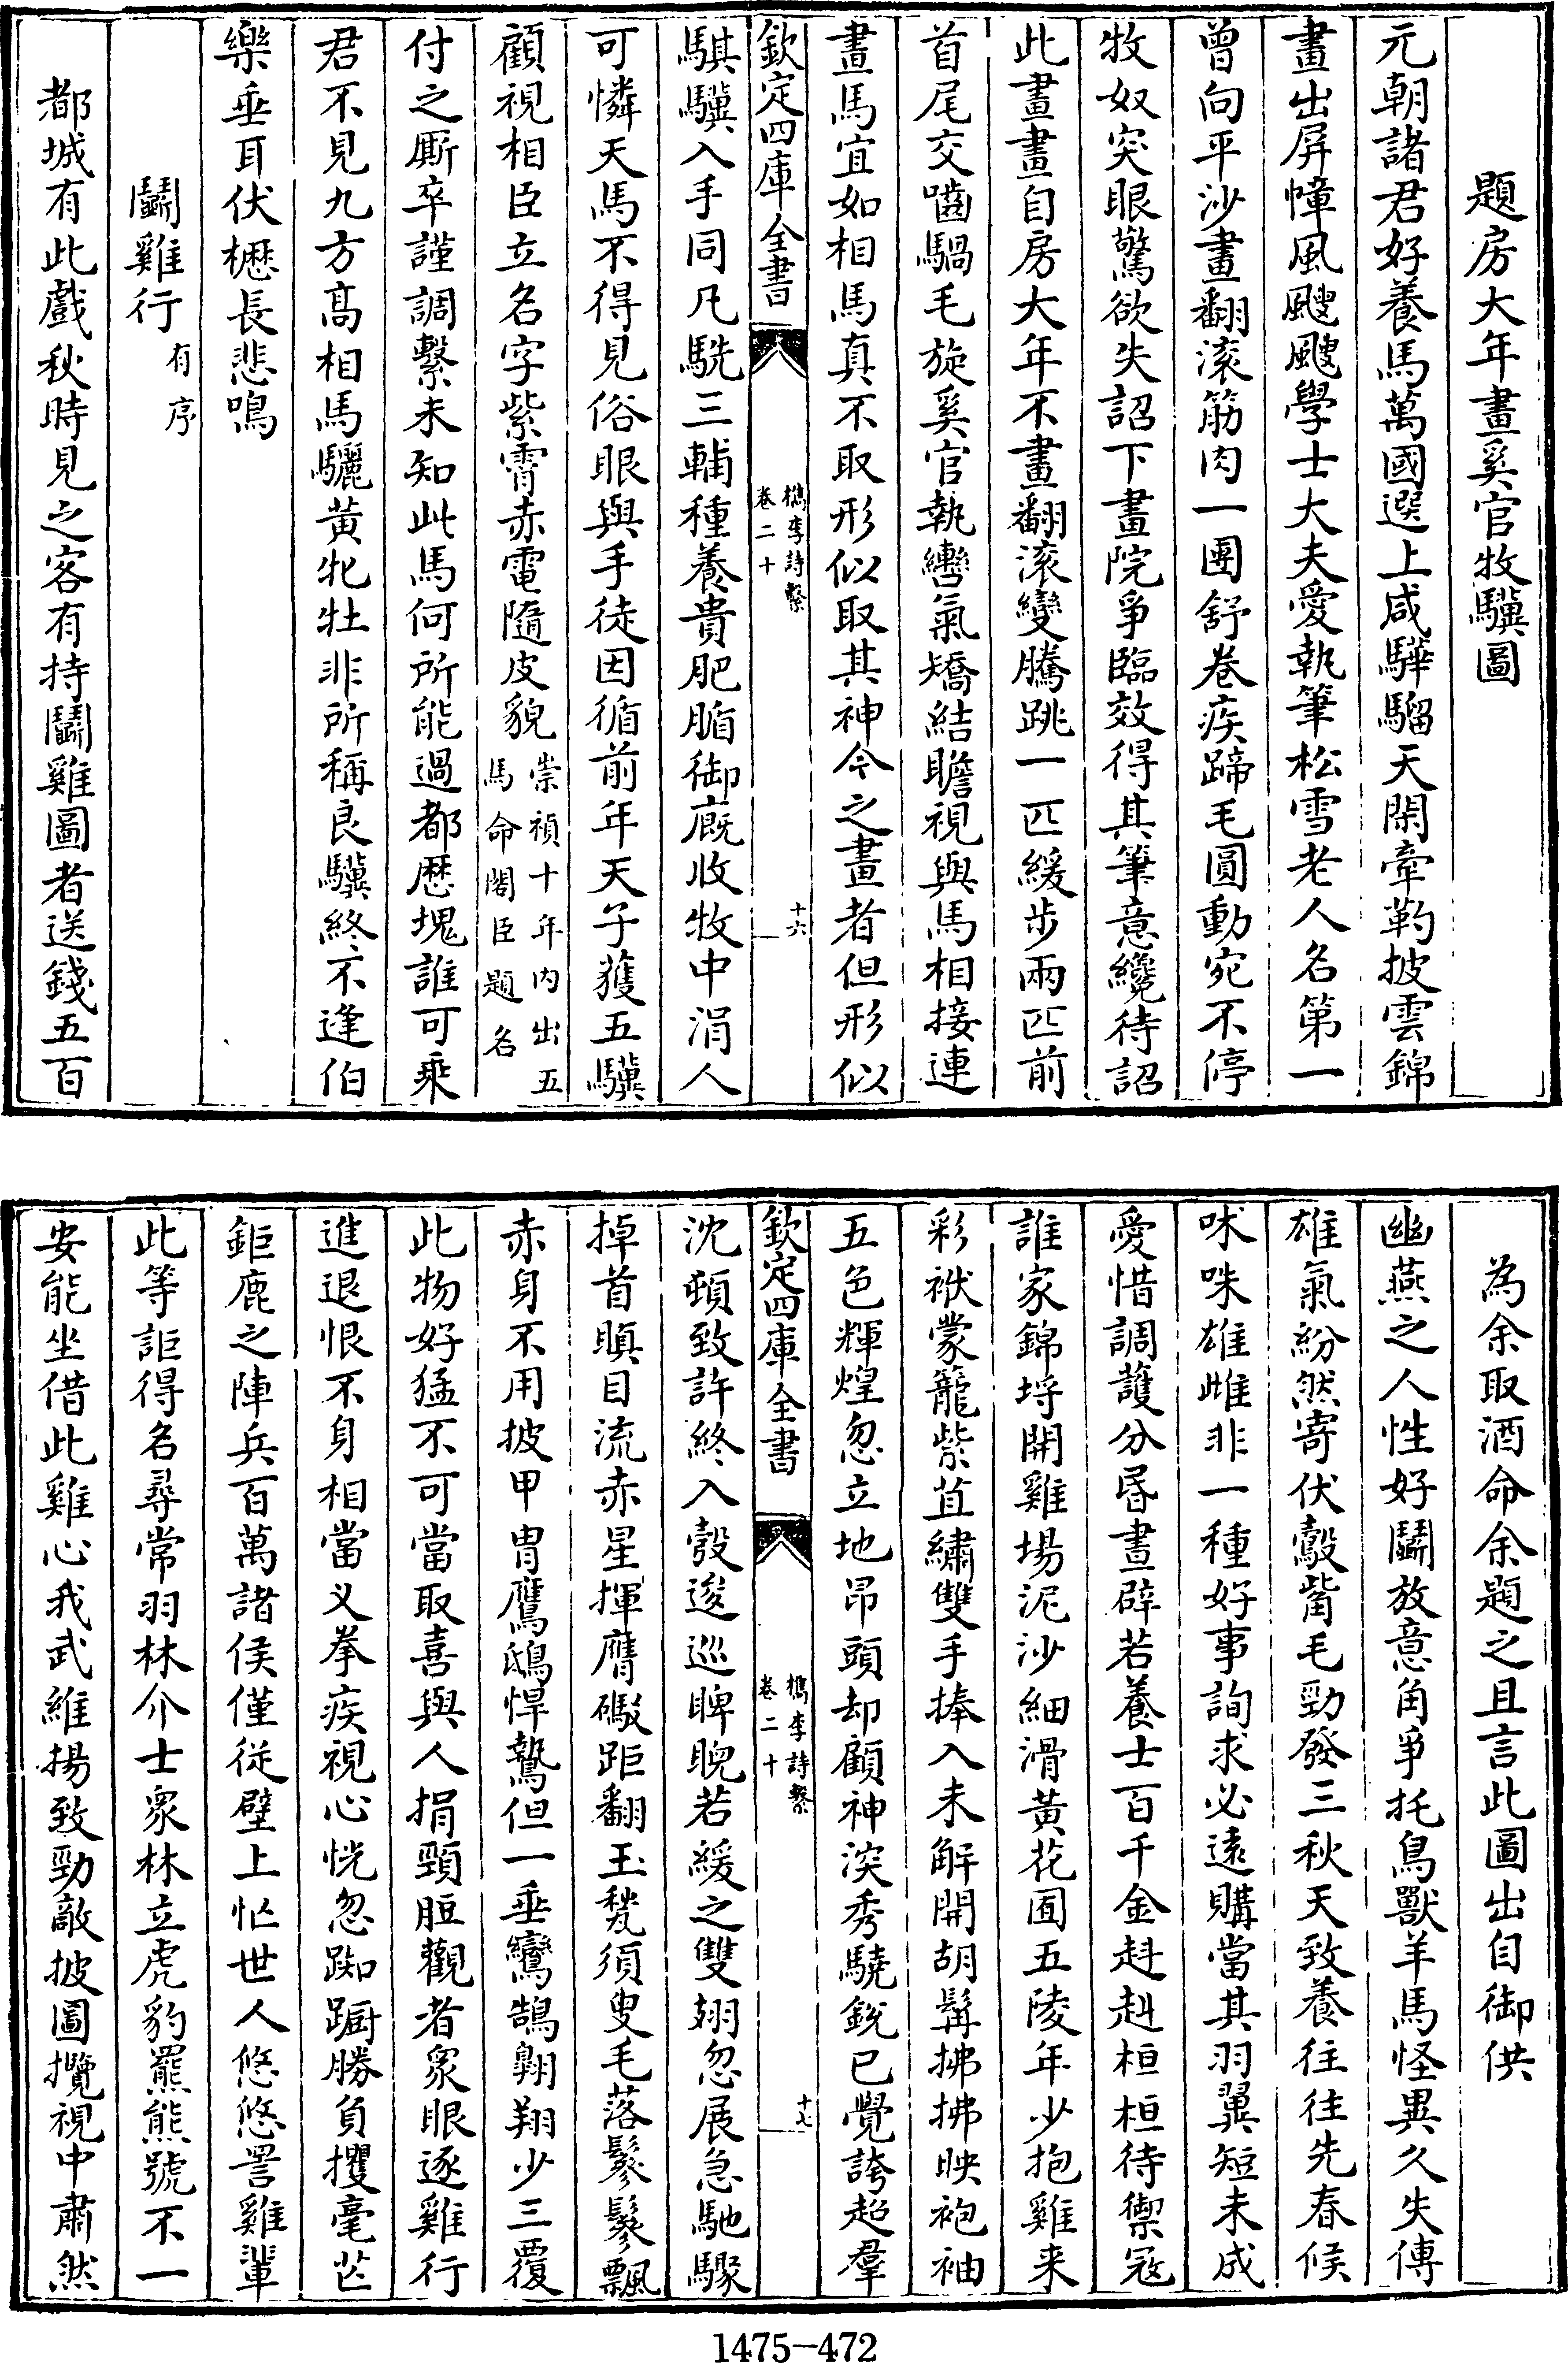 題房大年畫奚官牧驥圖
元朝諸君好養馬萬國選上咸驊騮天閑牽靮披雲錦
畫出屏幛風颼飀學士大夫愛執筆松雪老人名第一
曾向平沙畫翻滚筋肉一團舒卷疾蹄毛圓動宛不停
牧奴突眼驚欲失詔下畫院爭臨效得其筆意纔待詔
此畫畫自房大年不畫翻滚變騰跳一匹緩步兩匹前
首尾交嚙騧毛旋奚官執轡氣矯結瞻視與馬相接連
畫馬宜如相馬真不取形似取其神今之畫者但形似
欽定四庫全書
檇李詩繫
卷二十
十六
騏驥入手同凡駪三輔種養貴肥腯御廐收牧中涓人
可憐天馬不得見俗眼與手徒因循前年天子獲五驥
顧視相臣立名字紫霄赤電隨皮貌崇禎十年内出五
馬命閣臣題名
付之厮卒謹調繫未知此馬何所能過都歴塊誰可乘
君不見九方髙相馬驪黄牝牡非所稱良驥終不逢伯
樂垂耳伏櫪長悲鳴
鬭雞行有序
都城有此戲秋時見之客有持鬭雞圖者送錢五百
為余取酒命余題之且言此圖出自御供
幽燕之人性好鬭放意角爭托鳥獸羊馬怪異久失傳
雄氣紛然寄伏鷇觜毛勁發三秋天致養往往先春候
咮咮雄雌非一種好事詢求必遠購當其羽翼短未成
愛惜調護分昏晝辟若養士百千金赳赳桓桓待禦冦
誰家錦埒開雞塲泥沙細滑黄花囿五陵年少抱雞来
彩袱蒙籠紫苴繡雙手捧入未解開胡髯拂拂映袍袖
五色輝煌忽立地昂頭却顧神湥秀驍鋭已覺誇超羣
欽定四庫全書
檇李詩繫
卷二十
十七
沈頓致許終入彀逡巡睥睨若緩之雙翅忽展急馳驟
掉首瞋目流赤星揮膺礟距翻玉甃須臾毛落鬖鬖飄
赤身不用披甲胄鷹鴟悍鷙但一垂鸞鵠翱翔少三覆
此物好猛不可當取喜與人捐頸脰觀者衆眼逐雞行
進退恨不身相當义拳疾視心恍忽踟蹰勝負攫毫芒
鉅鹿之陣兵百萬諸侯僅従壁上忙世人悠悠詈雞輩
此等詎得名尋常羽林介士衆林立虎豹羆熊號不一
安能坐借此雞心我武維揚致勁敵披圖攬視中肅然
1475-472